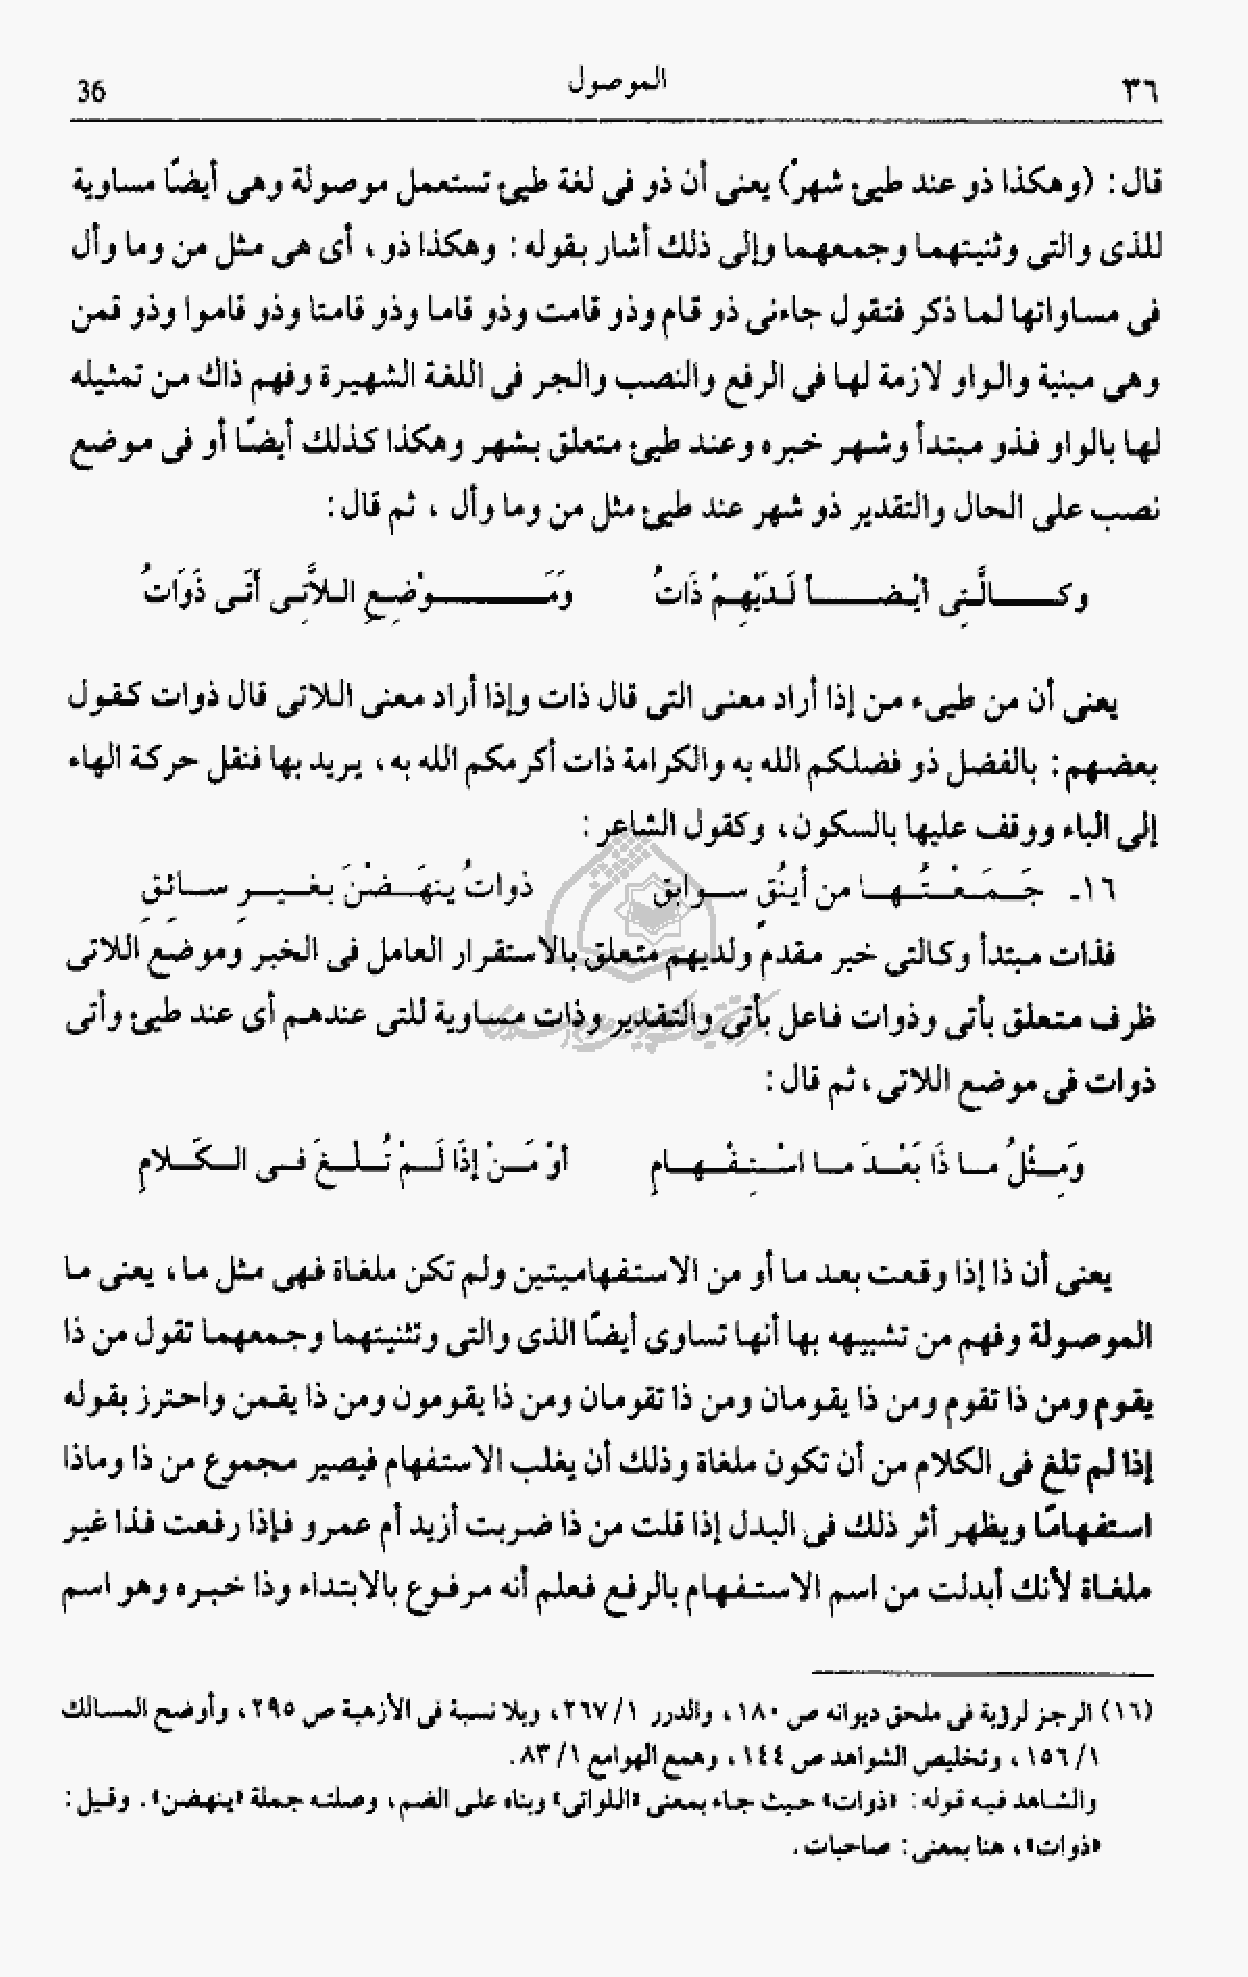 ٣٦
الموصول
36
قال : (وهكذا ذو عند طيئ شهرْ) يعنى أن ذو فى لغة طيئ تستعمل موصولة وهى أيضًا مساوية
للذى والتى وتثنيتهما وجمعهما وإلى ذلك أشار بقوله : وهكذا ذو ، أى هى مثل من وما وأل
فى مساواتها لما ذكر فتقول جاءنى ذو قام وذو قامت وذو قاما وذو قامتا وذو قاموا وذو قمن
وهى مبنية والواو لازمة لها فى الرفع والنصب والجر فى اللغة الشهيرة وفهم ذاك من تمثيله
لها بالواو فذو مبتدأ وشهر خبره وعند طيئ متعلق بشهر وهكذا كذلك أيضًا أو فى موضع
نصب على الحال والتقدير ذو شهر عند طيئ مثل من وما وأل ، ثم قال :
وكالَّتِى أيْضاً لَدَيْهِمْ ذَاتُ وَمَوْضِعِ اللاَّتِى أَتَى ذَوَاتُ
يعنى أن من طيىء من إذا أراد معنى التى قال ذات وإذا أراد معنى اللاتى قال ذوات كقول
بعضهم : بالفضل ذو فضلكم الله به والكرامة ذات أكرمكم الله به ، يريد بها فنقل حركة الهاء
إلى الباء ووقف عليها بالسكون ، وكقول الشاعر :
١٦ـ جَمَعْتُها من أينُقٍ سوابقِ ذواتُ ينهَضْنَ بغيرِ سائقِ
فذات مبتدأ وكالتى خبر مقدم ولديهم متعلق بالاستقرار العامل فى الخبر وموضع اللاتى
ظرف متعلق بأتى وذوات فاعل بأتى والتقدير وذات مساوية للتى عندهم أى عند طيئ وأتى
ذوات فى موضع اللاتى ، ثم قال :
وَمِثْلُ ما ذَا بَعْدَ ما اسْتِفْهامِ أوْ مَنْ إذَا لَمْ تُلْغَ فى الكَلامِ
يعنى أن ذا إذا وقعت بعد ما أو من الاستفهاميتين ولم تكن ملغاة فهى مثل ما ، يعنى ما
الموصولة وفهم من تشبيهه بها أنها تساوى أيضًا الذى والتى وتثنيتهما وجمعهما تقول من ذا
يقوم ومن ذا تقوم ومن ذا يقومان ومن ذا تقومان ومن ذا يقومون ومن ذا يقمن واحترز بقوله
إذا لم تلغ فى الكلام من أن تكون ملغاة وذلك أن يغلب الاستفهام فيصير مجموع من ذا وماذا
استفهامًا ويظهر أثر ذلك فى البدل إذا قلت من ذا ضربت أزيد أم عمرو فإذا رفعت فذا غير
ملغاة لأنك أبدلت من اسم الاستفهام بالرفع فعلم أنه مرفوع بالابتداء وذا خبره وهو اسم
(١٦) الرجز لرؤية فى ملحق ديوانه ص ١٨٠ ، والدرر ١/ ٢٦٧ ، وبلا نسبة فى الأزهية ص ٢٩٥ ، وأوضح المسالك
١/ ١٥٦ ، وتخليص الشواهد ص ١٤٤ ، وهمع الهوامع ١/ ٨٣.
والشاهد فيه قوله : «ذوات» حيث جاء بمعنى «اللواتى» وبناه على الضم ، وصلته جملة «ينهضن» . وقيل :
«ذوات» ، هنا بمعنى : صاحبات .